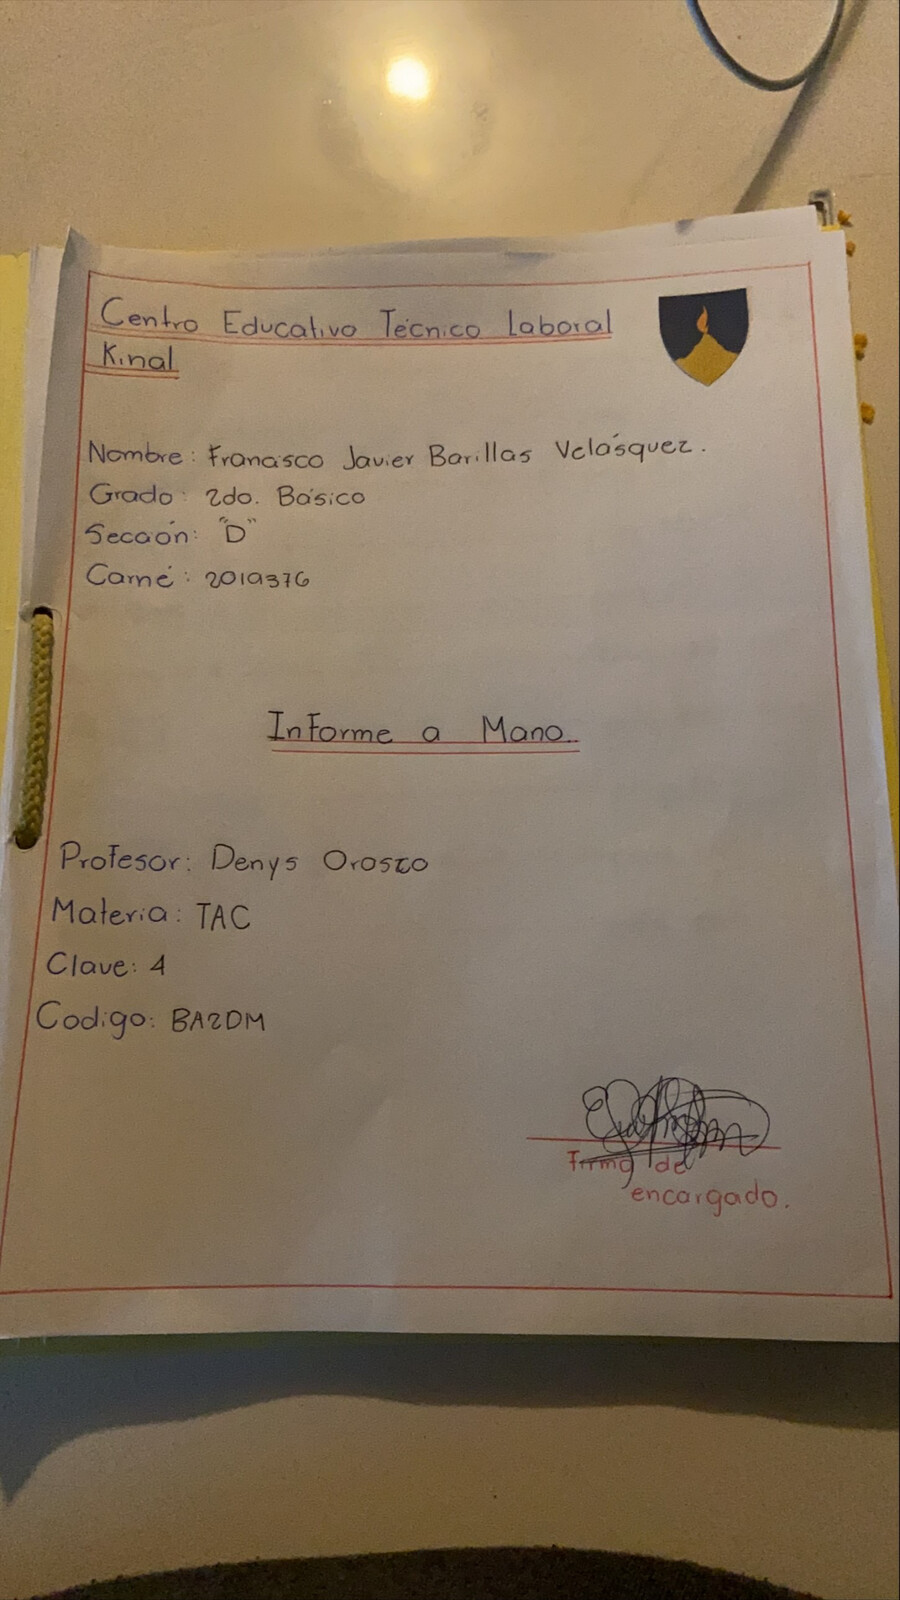 Centro Educativo Técnico Laboral
Kinal
Nombre: Francisco Javier Barillas Velásquez.
Grado: 2do. Básico
Sección: "D"
Carné: 2019376
Informe a Mano.
Profesor: Denys Orozco
Materia: TAC
Clave: 4
Codigo: BA2DM
Firma de
encargado.